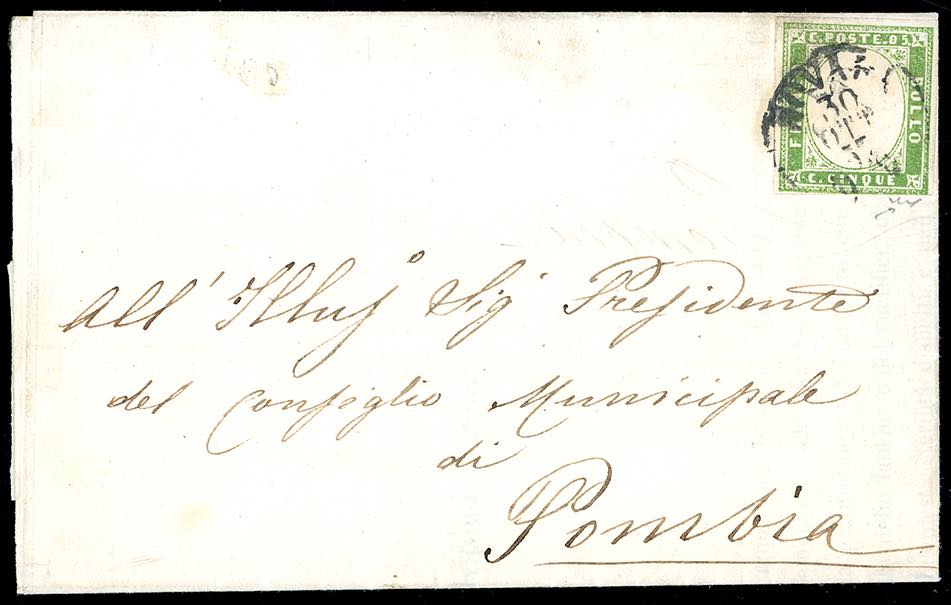 C. POSTE. 05
FRANCO BOLLO
C. CINQUE
30
OTT
57
All' Illuſ.º Sig.ʳ Preſidente
del Conſiglio Municipale
di
Pombia